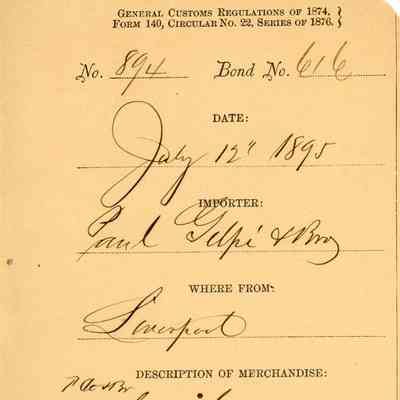 GENERAL CUSTOMS REGULATIONS OF 1874.
FORM 140, CIRCULAR No. 22, SERIES OF 1876.
No. 894 Bond No. 616
DATE:
July 12" 1895
IMPORTER:
Paul Gelpi & Bro
WHERE FROM:
Liverpool
DESCRIPTION OF MERCHANDISE: